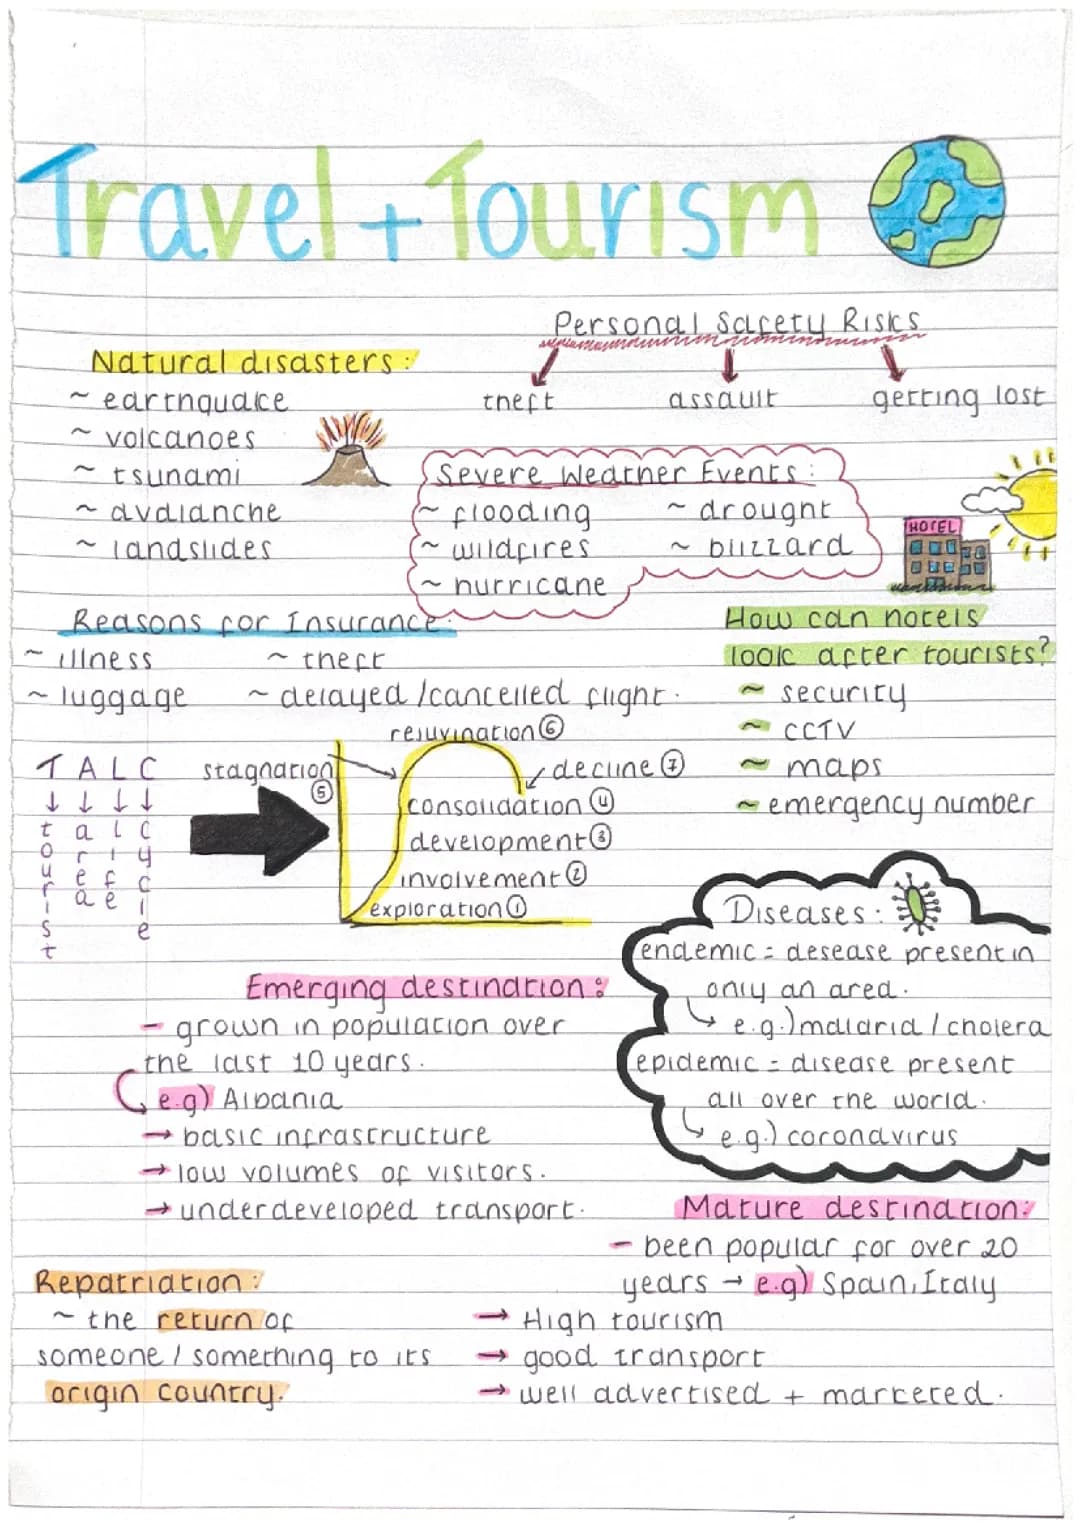 Travel + Tourism
Personal Safety Risks
Natural disasters:
theft assault getting lost
~ earthquake
~ volcanoes
~ tsunami
~ avalanche
~ landslides
Severe Weather Events:
~ flooding ~ drought
~ wildfires ~ blizzard
~ hurricane
HOTEL
Reasons for Insurance:
~ illness ~ theft
~ luggage ~ delayed/cancelled flight.
How can hotels
look after tourists?
~ security
~ CCTV
~ maps
~ emergency number
T A L C
tourist area life cycle
rejuvination ⑥
stagnation ⑤
decline ⑦
consolidation ④
development ③
involvement ②
exploration ①
Diseases:
endemic = desease present in
only an area.
e.g.) malaria / cholera
epidemic = disease present
all over the world.
e.g.) coronavirus
Emerging destination:
- grown in population over
the last 10 years.
e.g) Albania
→ basic infrastructure
→ low volumes of visitors.
→ underdeveloped transport.
Mature destination:
- been popular for over 20
years → e.g) Spain, Italy
→ High tourism
→ good transport
→ well advertised + marketed.
Repatriation:
~ the return of
someone / something to its
origin country.